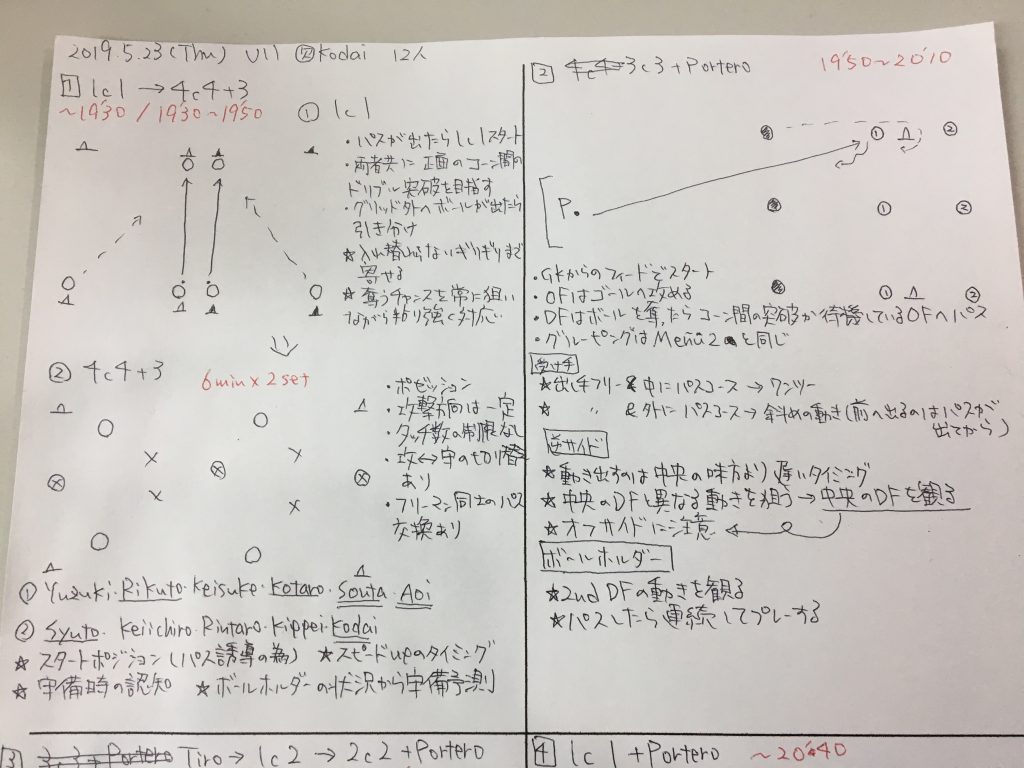 2019.5.23(Thu) U11 Kodai 12人
1 1c1 → 4c4+3
~19'30 / 19'30~19'50
① 1c1
・パスが出たら1c1スタート
・両者共に正面のコーン間の
ドリブル突破を目指す
・グリッド外へボールが出たら
引き分け
☆入れ替わらないギリギリまで
寄せる
☆奪うチャンスを常に狙い
ながら粘り強く対応
② 4c4+3
6min×2set
・ポゼッション
・攻撃方向は一定
・タッチ数の制限なし
・攻↔守の切り替え
あり
・フリーマン同士のパス
交換あり
① Yuzuki・Rikuto・Keisuke・Kotaro・Souta・Aoi
② Syuto・Keiichiro・Rintaro・Kippei・Kodai
☆スタートポジション(パス誘導の為) ☆スピードupのタイミング
☆守備時の認知 ☆ボールホルダーの状況から守備予測
2 4c4 3c3+Portero
19'50~20'10
① ②
P.
① ②
① ②
・GKからのフィードでスタート
・OFはゴールへ攻める
・DFはボールを奪ったらコーン間の突破か待機しているOFへパス
・グルーピングはMenu2と同じ
受け手
☆出し手フリー & 中にパスコース → ワンツー
☆ 〃 & 外にパスコース → 斜めの動き(前へ出るのはパスが
出てから)
逆サイド
☆動き出すのは中央の味方より遅いタイミング
☆中央のDFと異なる動きを狙う → 中央のDFを観る
☆オフサイドに注意
ボールホルダー
☆2nd DFの動きを観る
☆パスしたら連続してプレーする
3 3c3+Portero Tiro → 1c2 → 2c2+Portero
4 1c1+Portero ~20'40